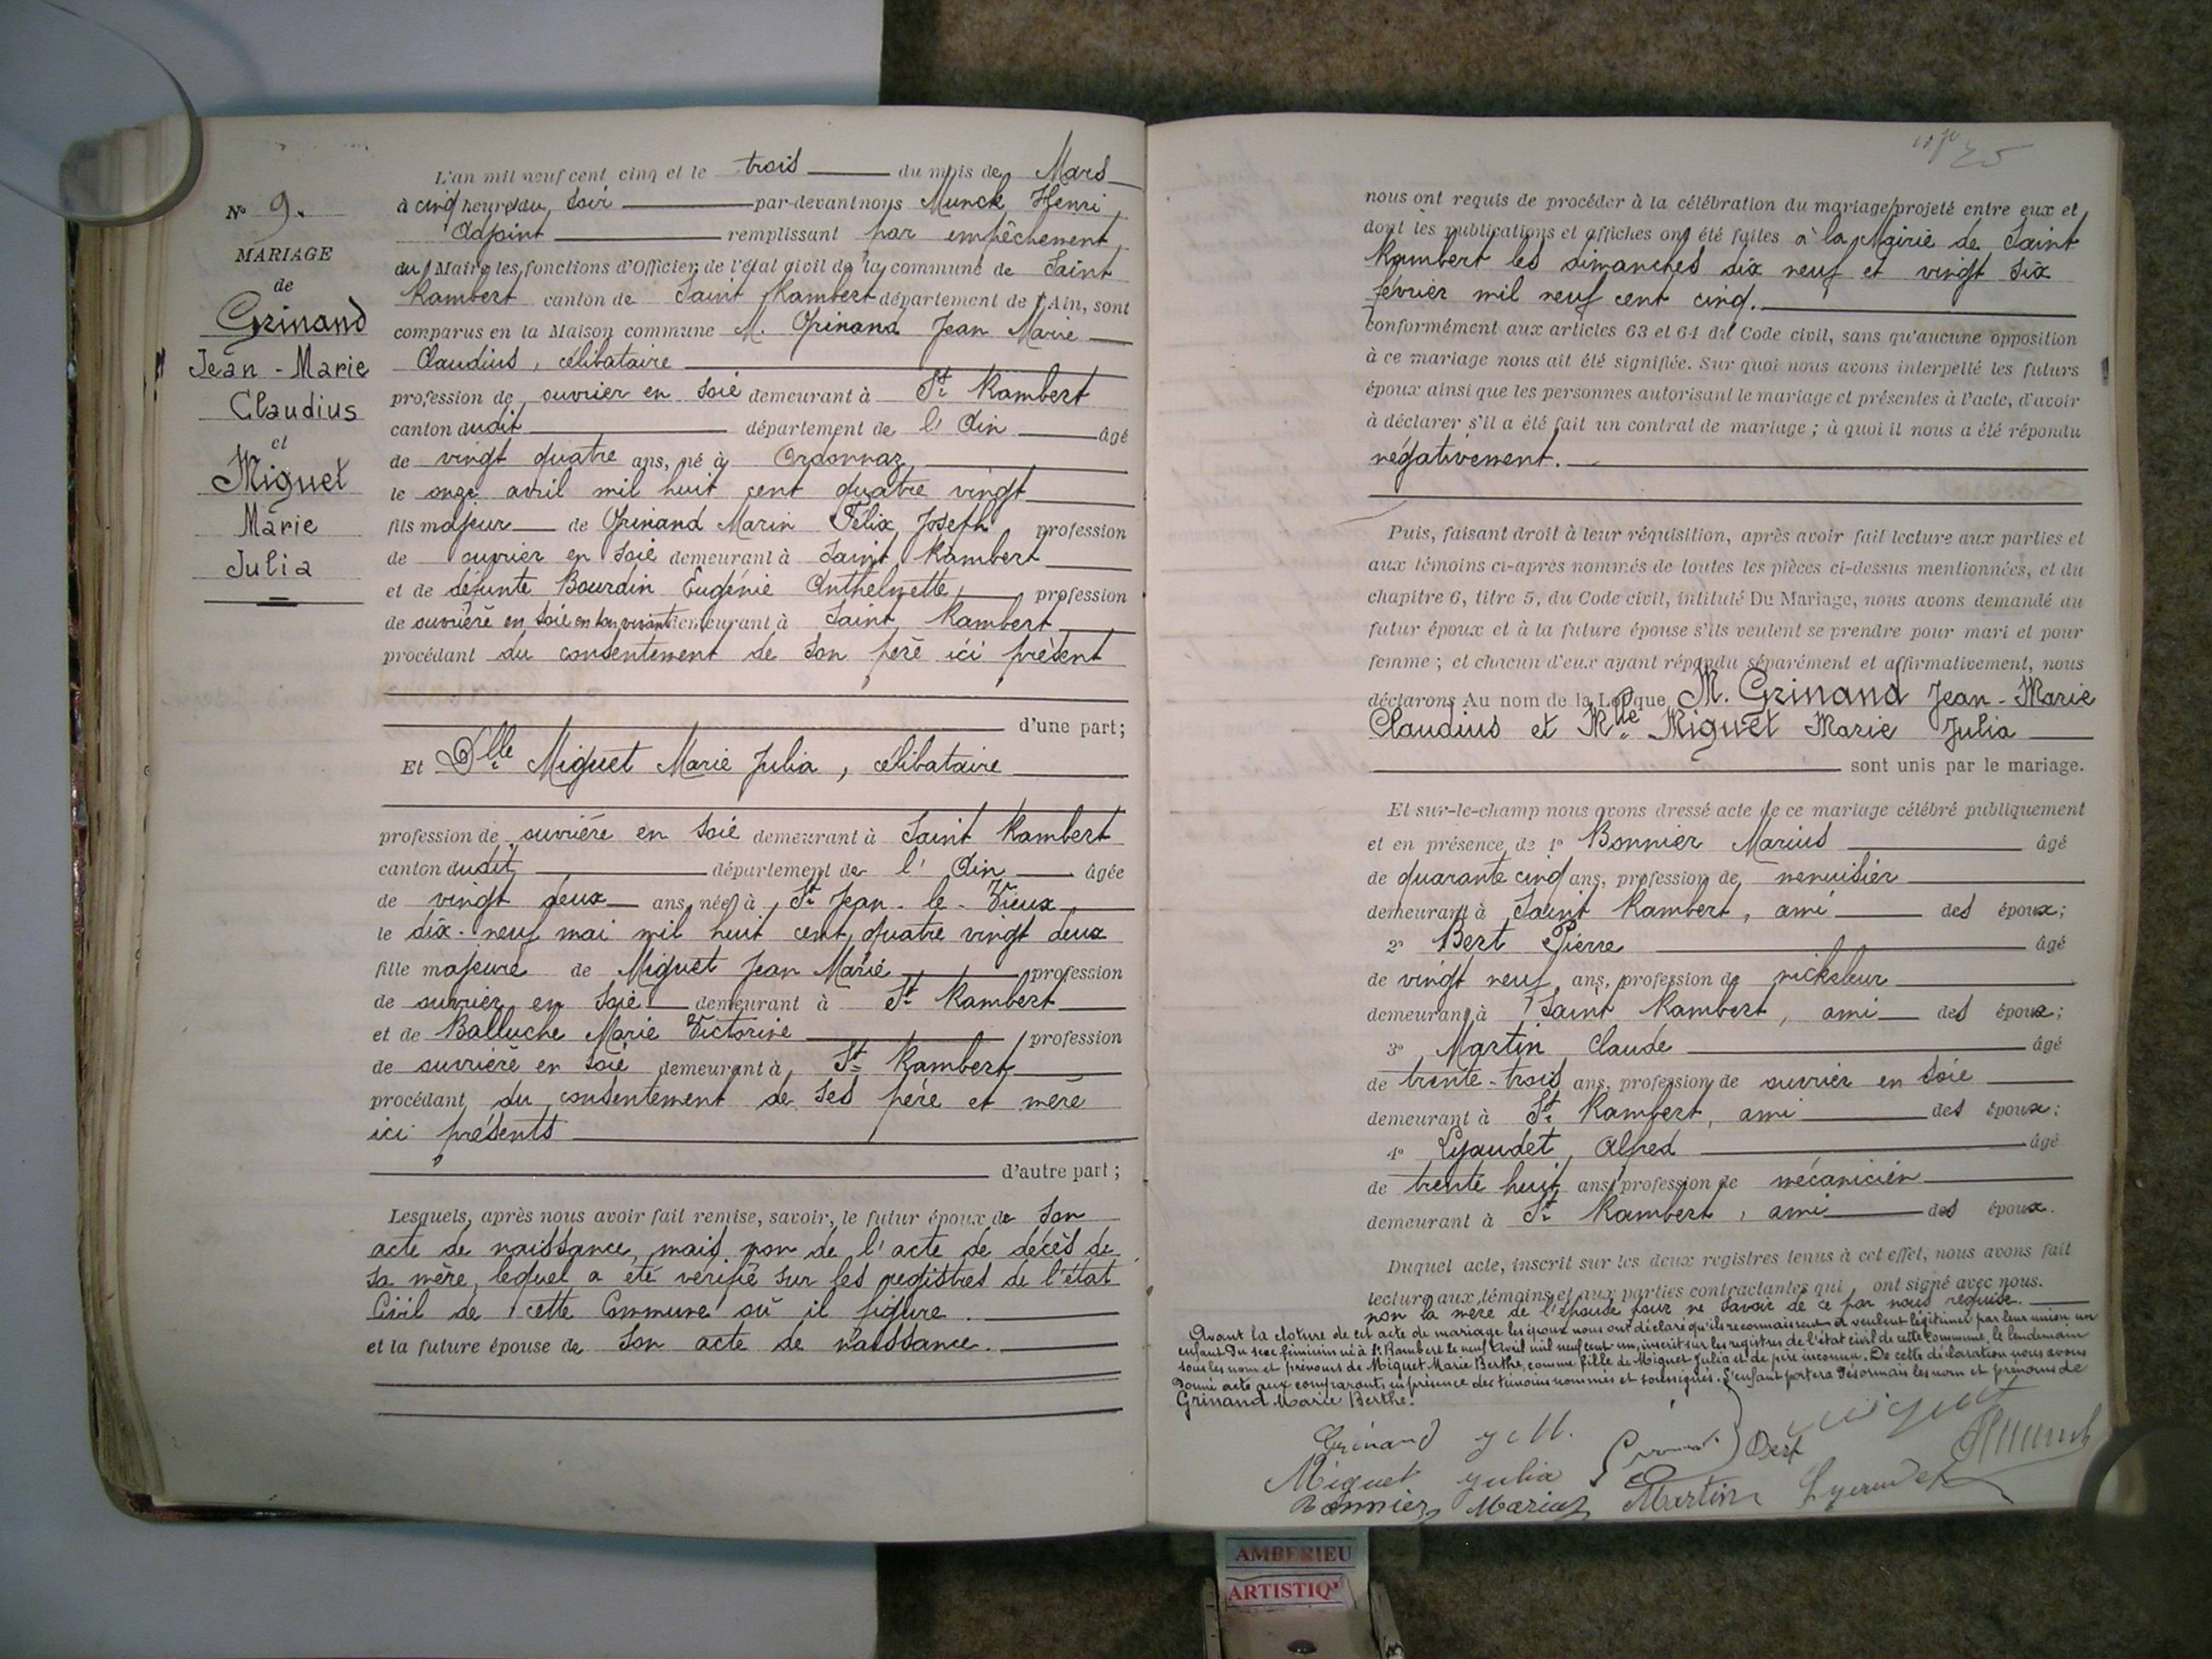 N° 9.
MARIAGE
de
Grinand
Jean-Marie
Claudius
et
Miguet
Marie
Julia
L'an mil neuf cent cinq et le trois du mois de Mars
à cinq heures du soir par-devant nous Munck Henri
Adjoint remplissant par empêchement
du Maire les fonctions d'Officier de l'état civil de la commune de Saint
Rambert canton de Saint Rambert département de l'Ain, sont
comparus en la Maison commune M. Grinand Jean Marie
Claudius, célibataire
profession de ouvrier en soie demeurant à St Rambert
canton dudit département de l'Ain âgé
de vingt quatre ans, né à Ordonnaz
le onze avril mil huit cent quatre vingt
fils majeur de Grinand Marin Félix Joseph profession
de ouvrier en soie demeurant à Saint Rambert
et de défunte Bourdin Eugénie Anthelmette, profession
de ouvrière en soie en son vivant demeurant à Saint Rambert
procédant du consentement de son père ici présent
d'une part;
Et Dlle Miguet Marie Julia, célibataire
profession de ouvrière en soie demeurant à Saint Rambert
canton dudit département de l'Ain âgée
de vingt deux ans, née à St Jean-le-Vieux
le dix-neuf mai mil huit cent quatre vingt deux
fille majeure de Miguet Jean Marie profession
de ouvrier en soie demeurant à St Rambert
et de Balluche Marie Victorine profession
de ouvrière en soie demeurant à St Rambert
procédant du consentement de ses père et mère
ici présents
d'autre part;
Lesquels, après nous avoir fait remise, savoir, le futur époux de son
acte de naissance, mais non de l'acte de décès de
sa mère, lequel a été vérifié sur les registres de l'état
Civil de cette Commune où il figure.
et la future épouse de son acte de naissance.
25
nous ont requis de procéder à la célébration du mariage projeté entre eux et
dont les publications et affiches ont été faites à la Mairie de Saint
Rambert les dimanches dix neuf et vingt six
février mil neuf cent cinq.
conformément aux articles 63 et 64 du Code civil, sans qu'aucune opposition
à ce mariage nous ait été signifiée. Sur quoi nous avons interpellé les futurs
époux ainsi que les personnes autorisant le mariage et présentes à l'acte, d'avoir
à déclarer s'il a été fait un contrat de mariage; à quoi il nous a été répondu
négativement.
Puis, faisant droit à leur réquisition, après avoir fait lecture aux parties et
aux témoins ci-après nommés de toutes les pièces ci-dessus mentionnées, et du
chapitre 6, titre 5, du Code civil, intitulé Du Mariage, nous avons demandé au
futur époux et à la future épouse s'ils veulent se prendre pour mari et pour
femme; et chacun d'eux ayant répondu séparément et affirmativement, nous
déclarons Au nom de la Loi que M. Grinand Jean-Marie
Claudius et Mlle Miguet Marie Julia
sont unis par le mariage.
Et sur-le-champ nous avons dressé acte de ce mariage célébré publiquement
et en présence de 1° Bonnier Marius âgé
de quarante cinq ans, profession de menuisier
demeurant à Saint Rambert, ami des époux;
2° Bert Pierre âgé
de vingt neuf ans, profession de nickeleur
demeurant à Saint Rambert, ami des époux;
3° Martin Claude âgé
de trente-trois ans, profession de ouvrier en soie
demeurant à St Rambert, ami des époux;
4° Lyaudet Alfred âgé
de trente huit ans, profession de mécanicien
demeurant à St Rambert, ami des époux.
Duquel acte, inscrit sur les deux registres tenus à cet effet, nous avons fait
lecture aux témoins et aux parties contractantes qui ont signé avec nous.
non la mère de l'épouse pour ne savoir de ce par nous requise.
Avant la cloture de cet acte de mariage les époux nous ont déclaré qu'ils reconnaissent et veulent légitimer par leur union un
enfant du sexe féminin né à St Rambert le neuf Avril mil neuf cent un, inscrit sur les registres de l'état civil de cette commune, le lendemain
sous les nom et prénoms de Miguet Marie Berthe, comme fille de Miguet Julia et de père inconnu. De cette déclaration nous avons
donné acte aux comparants, en présence des témoins nommés et soussignés. L'enfant portera désormais les nom et prénoms de
Grinand Marie Berthe.
Grinand J M.
Bert
Miguet
Miguet Julia
Munck
Bonnier Marius
Martin
Lyaudet
AMBERIEU
ARTISTIQ'